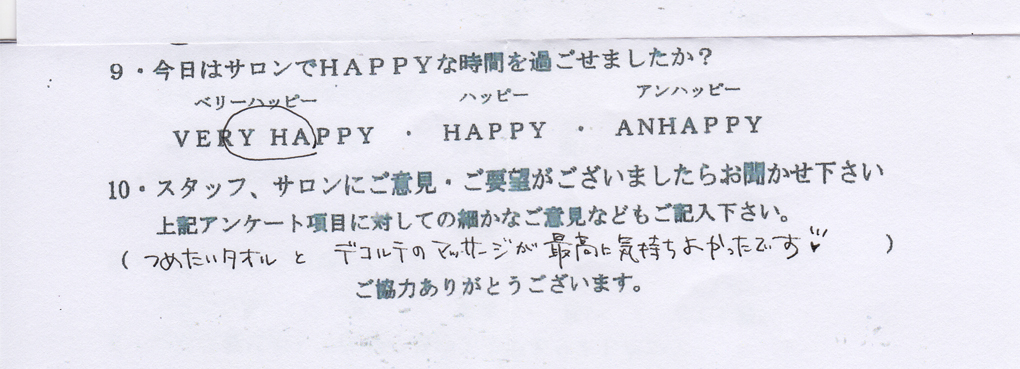 9・今日はサロンでHAPPYな時間を過ごせましたか？
ベリーハッピー ハッピー アンハッピー
VERY HAPPY ・ HAPPY ・ ANHAPPY
10・スタッフ、サロンにご意見・ご要望がございましたらお聞かせ下さい
上記アンケート項目に対しての細かなご意見などもご記入下さい。
（ つめたいタオル と デコルテのマッサージが 最高に気持ちよかったです ）
ご協力ありがとうございます。